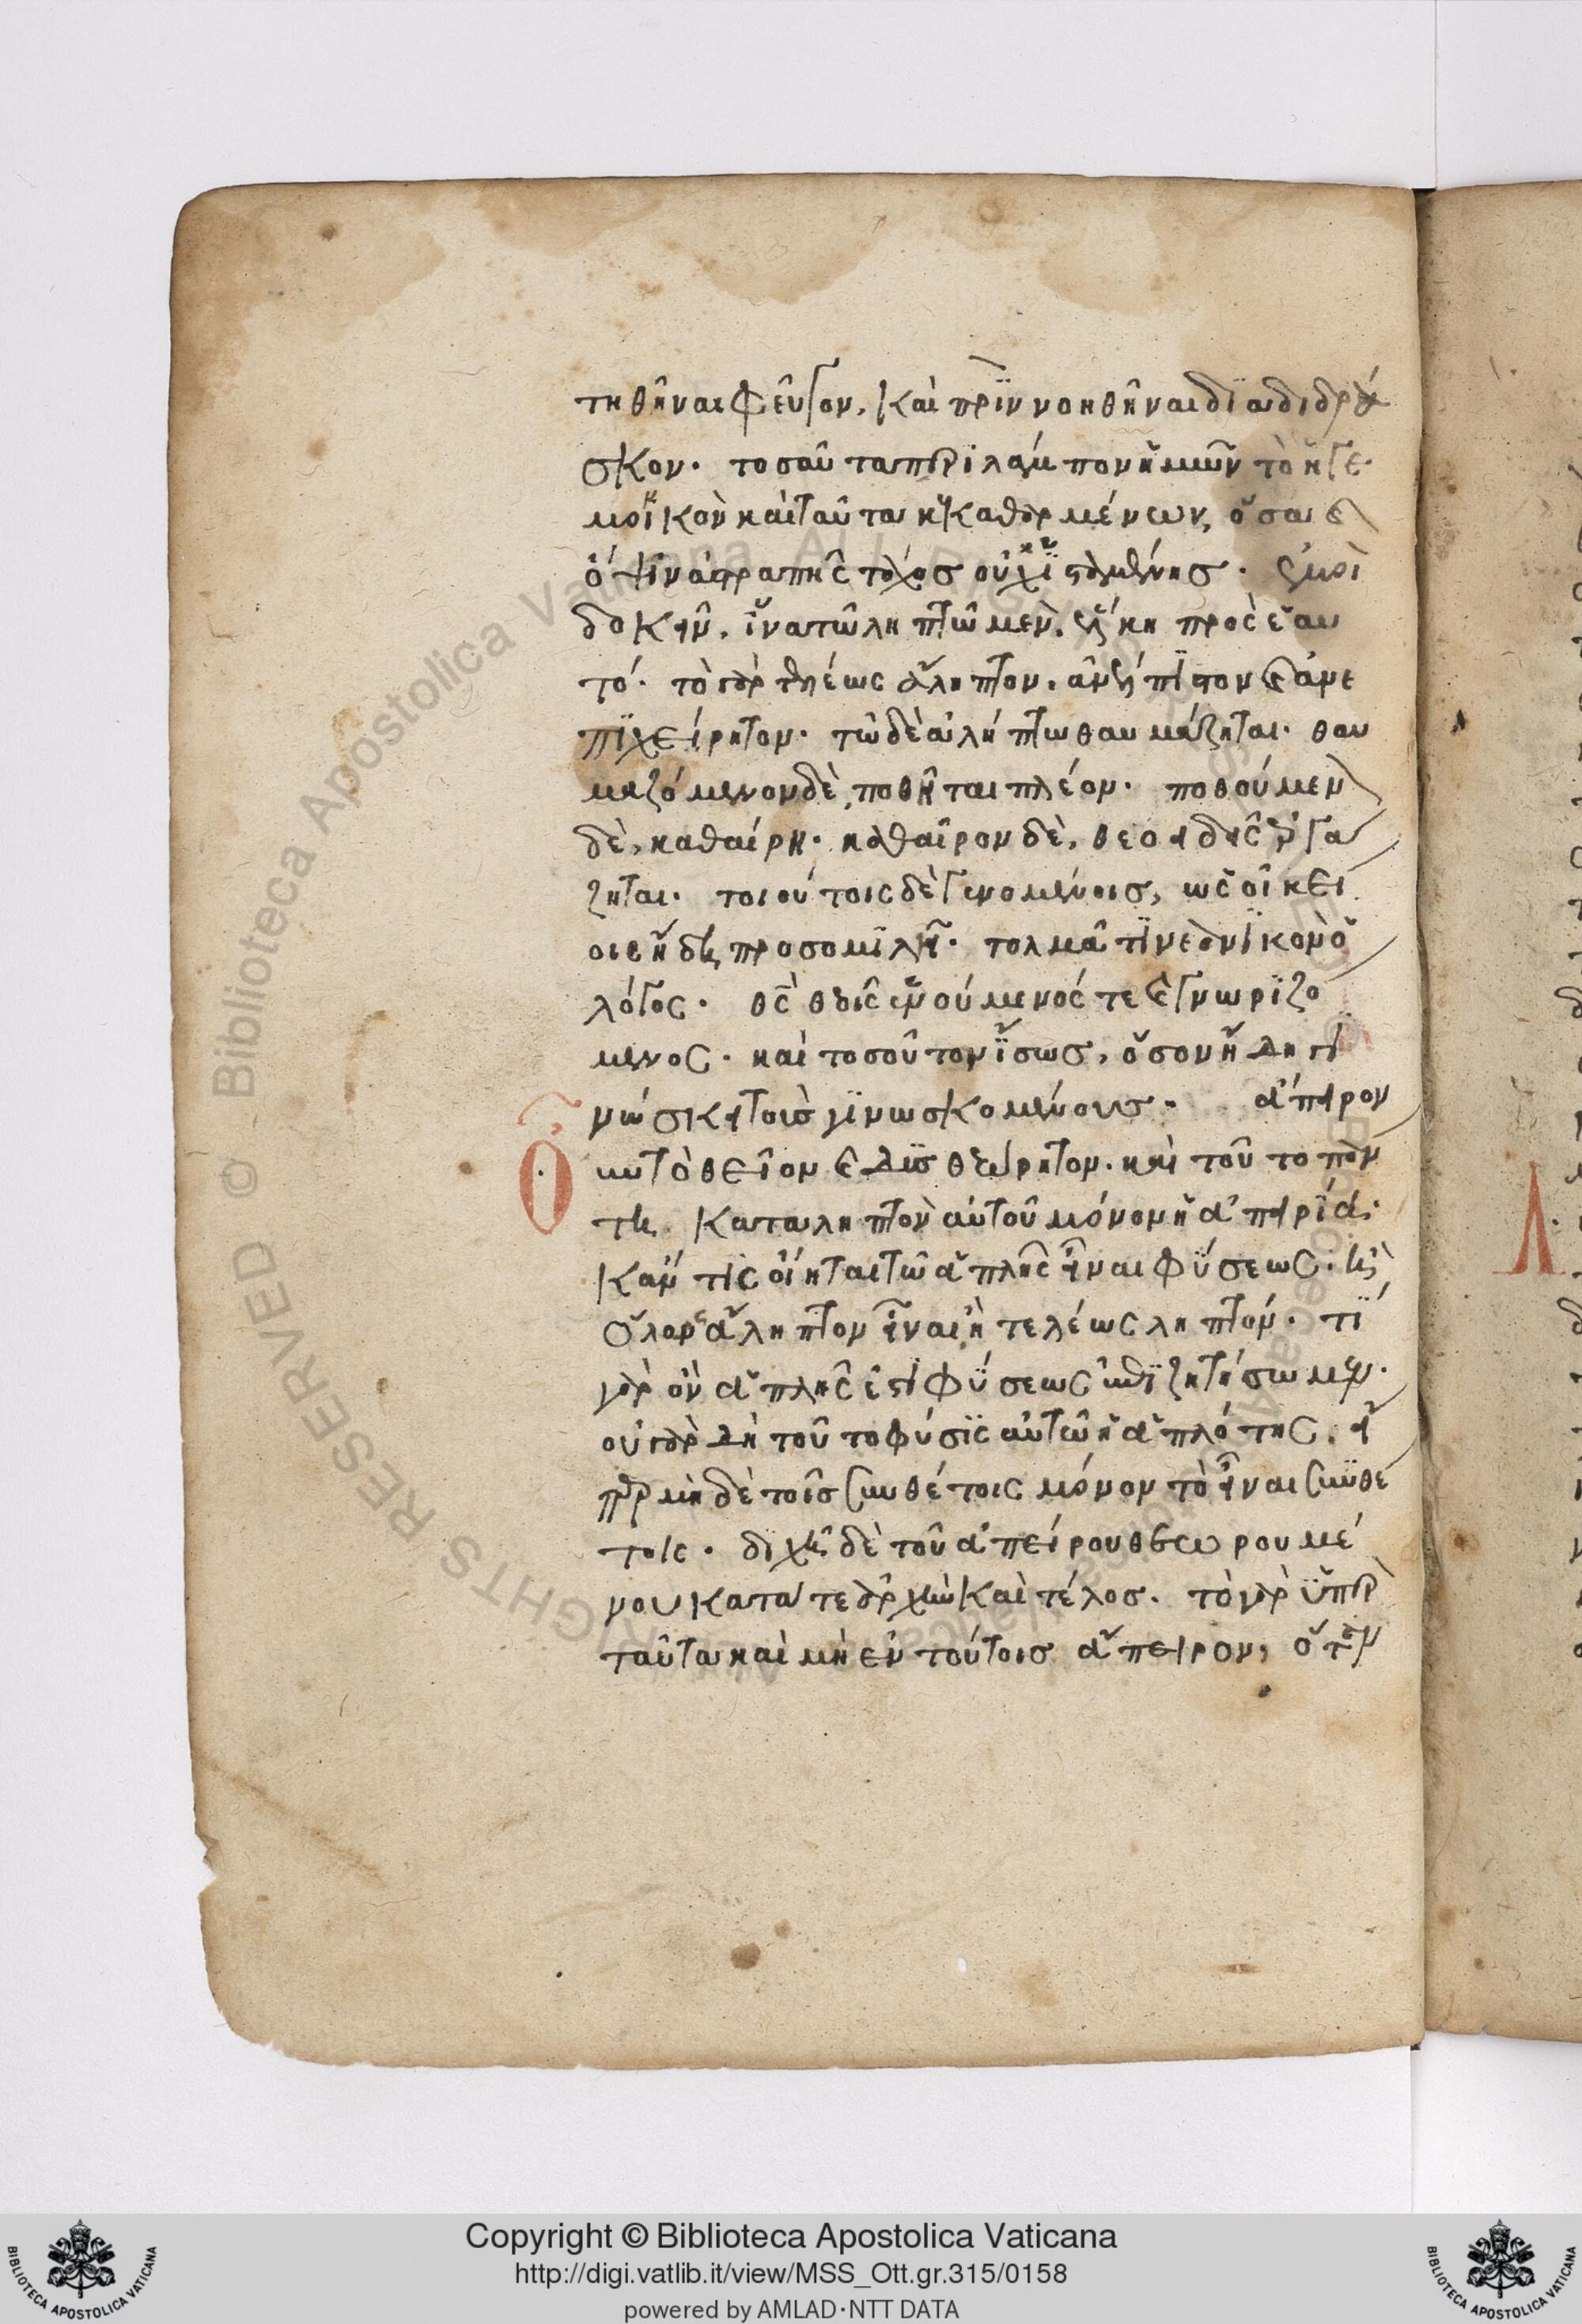 τηθῆναι φεῦγον, καὶ πρϊν νοηθῆναι δϊαδιδρά
σκον· τοσαῦτα περιλάμπον ἡμῶν τὸ ἡγε
μοϊκὸν καὶ ταῦτα κεκαθαρμένων, ὅσα καὶ
ὄψιν ἀστραπῆς τάχος οὐχ ἱσταμένης· ἐμοὶ
δοκεῖν, ἵνα τῶ ληπτῶ μὲν, ἕλκη πρὸς ἑαυ
τό· τὸ γὰρ τελέως ἄληπτον, ἀνέλπιστον καὶ ἀνε
πϊχείρητον· τῶ δὲ ἀλήπτω θαυμάζηται· θαυ
μαζόμενον δὲ, ποθῆται πλέον· ποθούμεν
δὲ, καθαίρη· καθαῖρον δὲ, θεοειδεῖς ἐργά
ζηται· τοιούτοις δὲ γενομένοις, ὡς οἰκεί
οις ἤδη προσομϊλῆ· τολμᾶ τϊ νεανϊκὸν ὁ
λόγος· θς θεοῖς ἑνούμενός τε καὶ γνωρϊζό
μενος· καὶ τοσοῦτον ἴσως, ὅσον ἤδη γι
νώσκει τοὺς γϊνωσκομένους· ἄπειρον
οὖν τὸ θεῖον καὶ δυσθεώρητον· καὶ τοῦτο πάν
τη καταληπτὸν αὐτοῦ μόνον ἡ ἀπειρία·
κἄν τις οἴηται τῶ ἁπλῆς εἶναι φύσεως. ἢ
ὅλον ἄληπτον εἶναι ἢ τελέως ληπτόν· τί
γὰρ ὂν ἁπλῆς ἐστὶ φύσεως ἐπϊζητήσωμεν·
οὐ γὰρ δὴ τοῦτο φύσϊς αὐτῶ ἡ ἁπλότης, εἴ
περ μὴ δὲ τοῖς συνθέτοις μόνον τὸ εἶναι συνθέ
τοις· διχῆ δὲ τοῦ ἀπείρου θεωρουμέ
νου κατά τε ἀρχὴν καὶ τέλος· τὸ γὰρ ὑπὲρ
ταῦτα καὶ μὴ ἐν τούτοις ἄπειρον, ὅταν
Copyright © Biblioteca Apostolica Vaticana
http://digi.vatlib.it/view/MSS_Ott.gr.315/0158
powered by AMLAD·NTT DATA